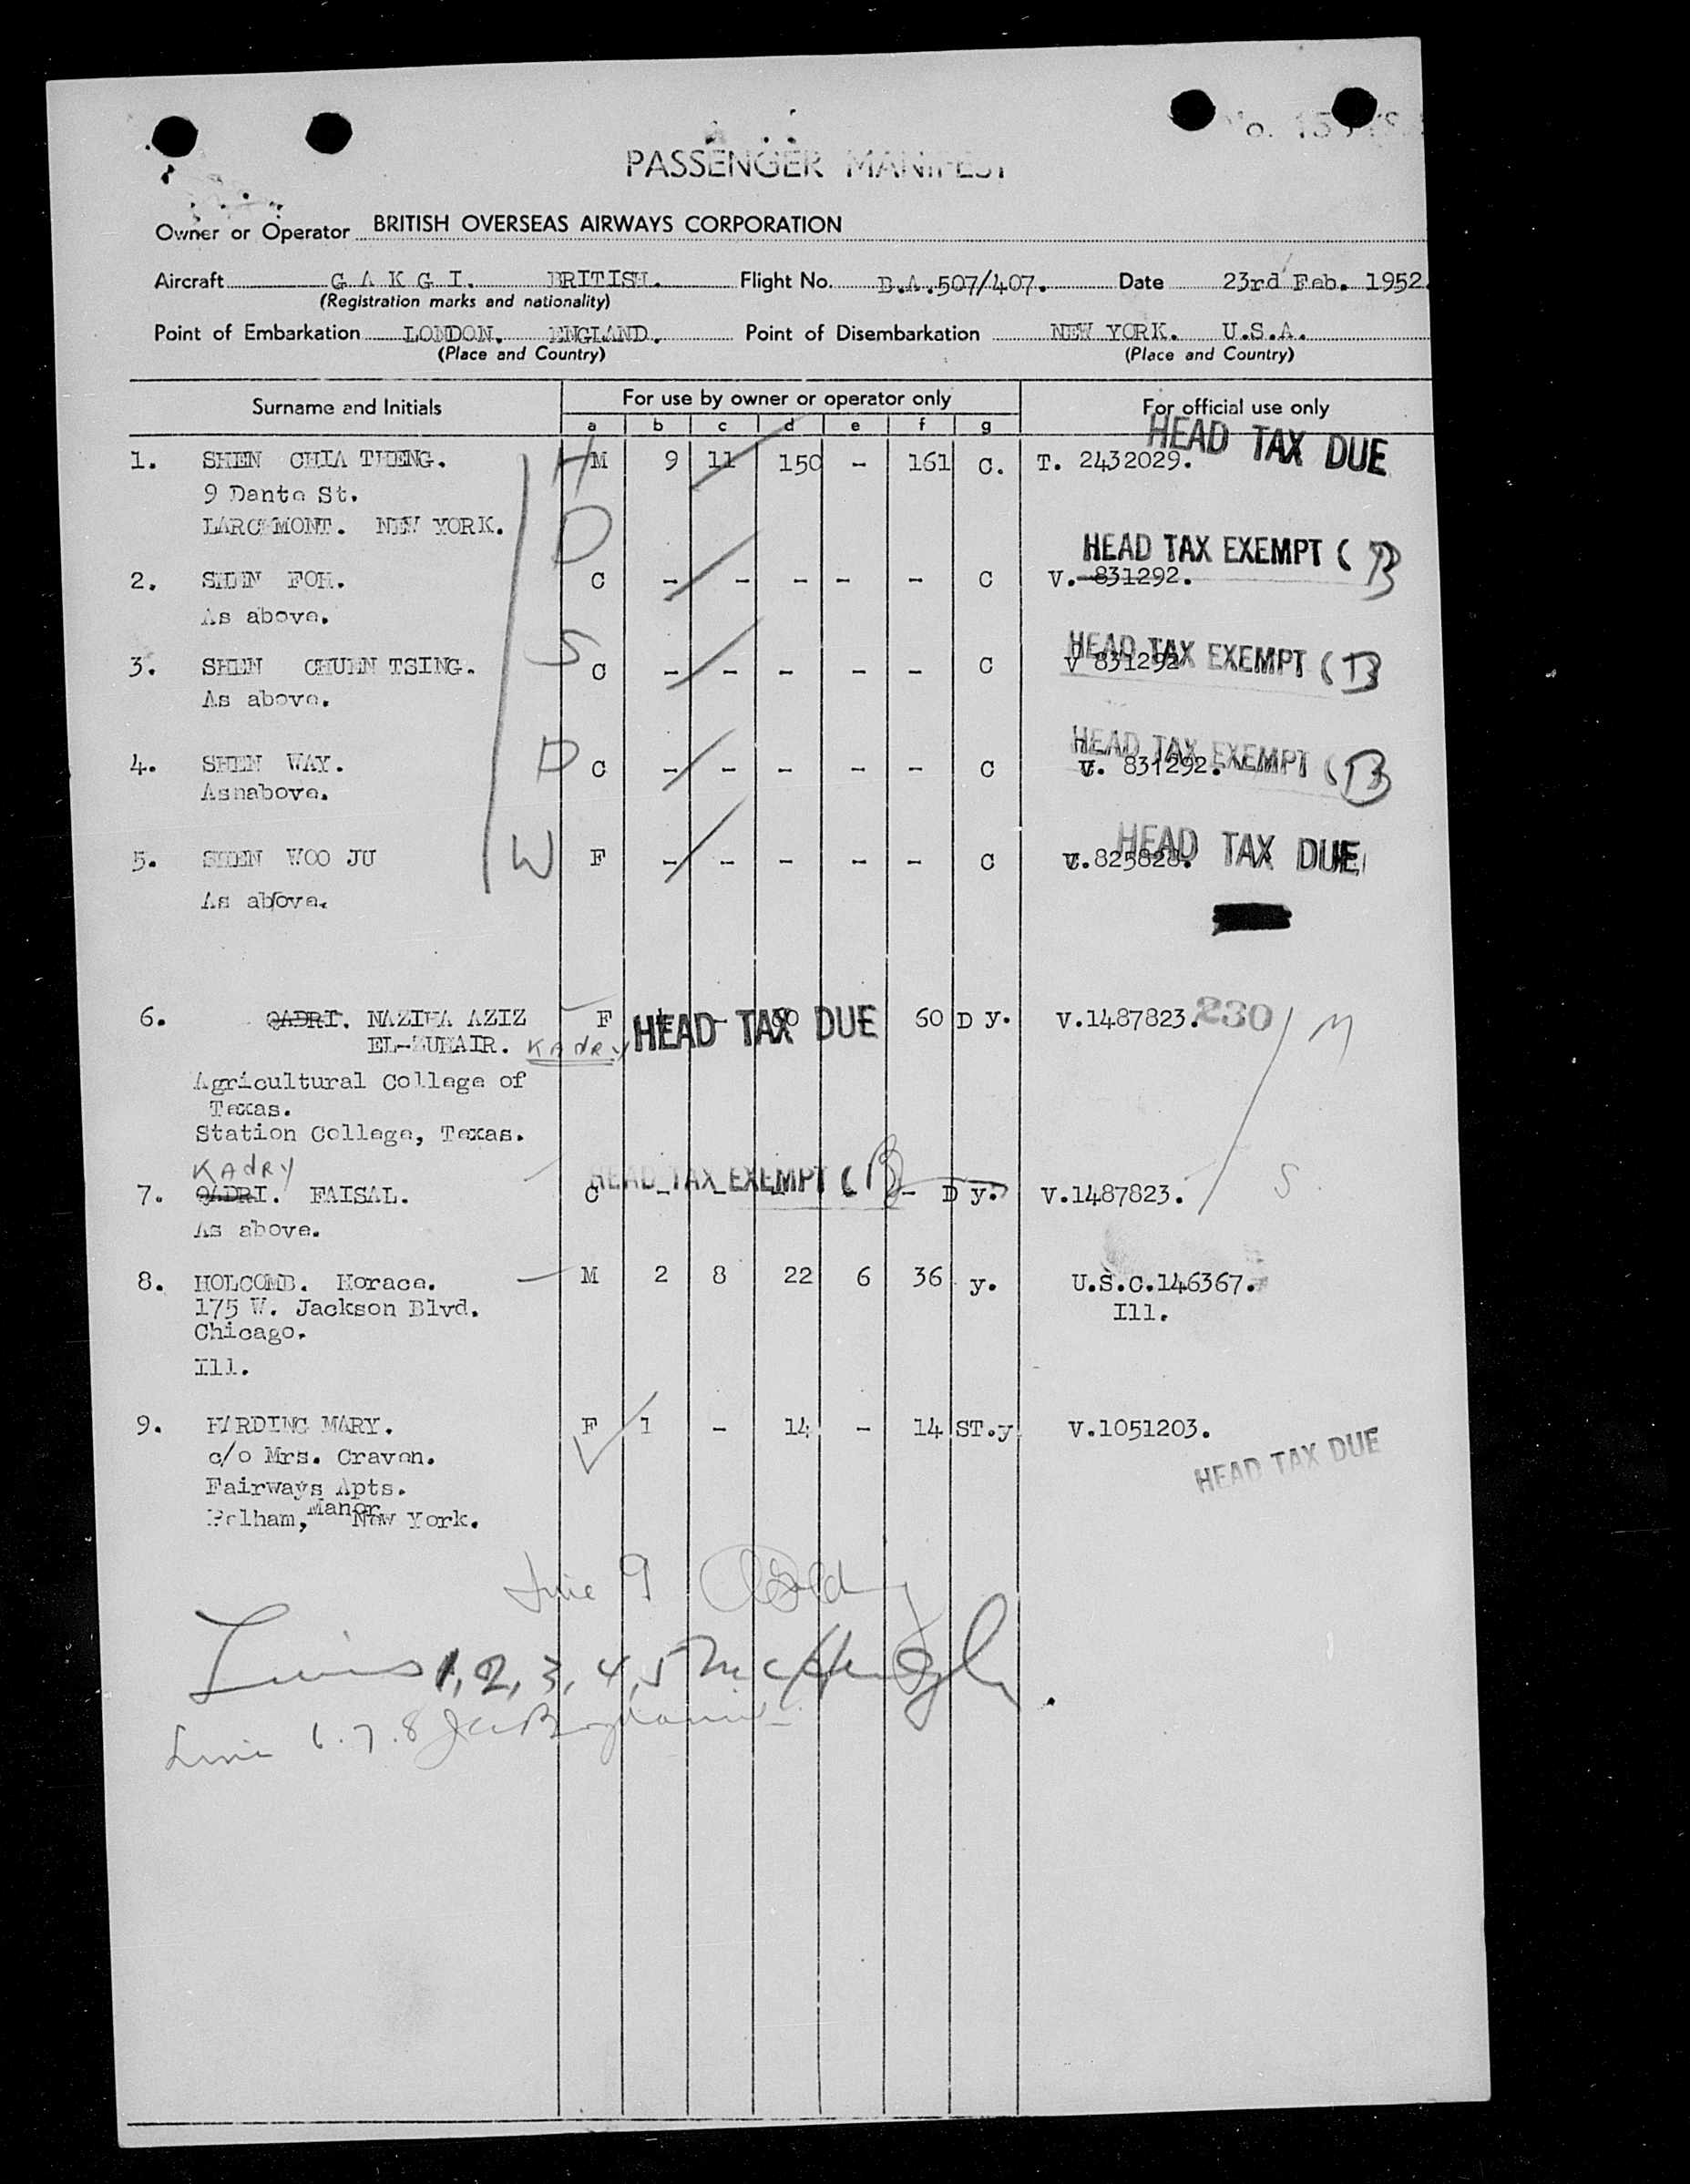 PASSENGER MANIFEST
Owner or Operator BRITISH OVERSEAS AIRWAYS CORPORATION
Aircraft G A K G I. BRITISH. Flight No. B.A.507/407. Date 23rd Feb. 1952.
(Registration marks and nationality)
Point of Embarkation LONDON. ENGLAND. Point of Disembarkation NEW YORK. U.S.A.
(Place and Country) (Place and Country)
Surname and Initials For use by owner or operator only For official use only
a b c d e f g
HEAD TAX DUE
1. SHEN CHIA THENG. H M 9 11 150 - 161 C. T. 2432029.
9 Dante St.
LARCHMONT. NEW YORK. D
HEAD TAX EXEMPT ( B
2. SHEN FOH. C - - - - - C V. 831292.
As above.
3. SHEN CHUEN TSING. S C - - - - - C V 831292 HEAD TAX EXEMPT ( B
As above.
HEAD TAX EXEMPT ( B
4. SHEN WAY. D C - - - - - C V. 831292.
Asnabove.
5. SHEN WOO JU W F - - - - - C V.825828. HEAD TAX DUE
As above.
6. QADRI. NAZIHA AZIZ F HEAD TAX DUE 60 D y. V.1487823. 230 M
EL-ZUHAIR. KAdRy
Agricultural College of
Texas.
Station College, Texas.
KAdRy
7. QADRI. FAISAL. C HEAD TAX EXEMPT ( B - D y. V.1487823. S
As above.
8. HOLCOMB. Horace. M 2 8 22 6 36 y. U.S.C.146367.
175 W. Jackson Blvd. Ill.
Chicago.
Ill.
9. HARDING MARY. F 1 - 14 - 14 ST.y V.1051203.
c/o Mrs. Craven. HEAD TAX DUE
Fairways Apts.
Pelham, Manor New York.
Line 9
Lines 1, 2, 3, 4, 5
Line 6.7.8